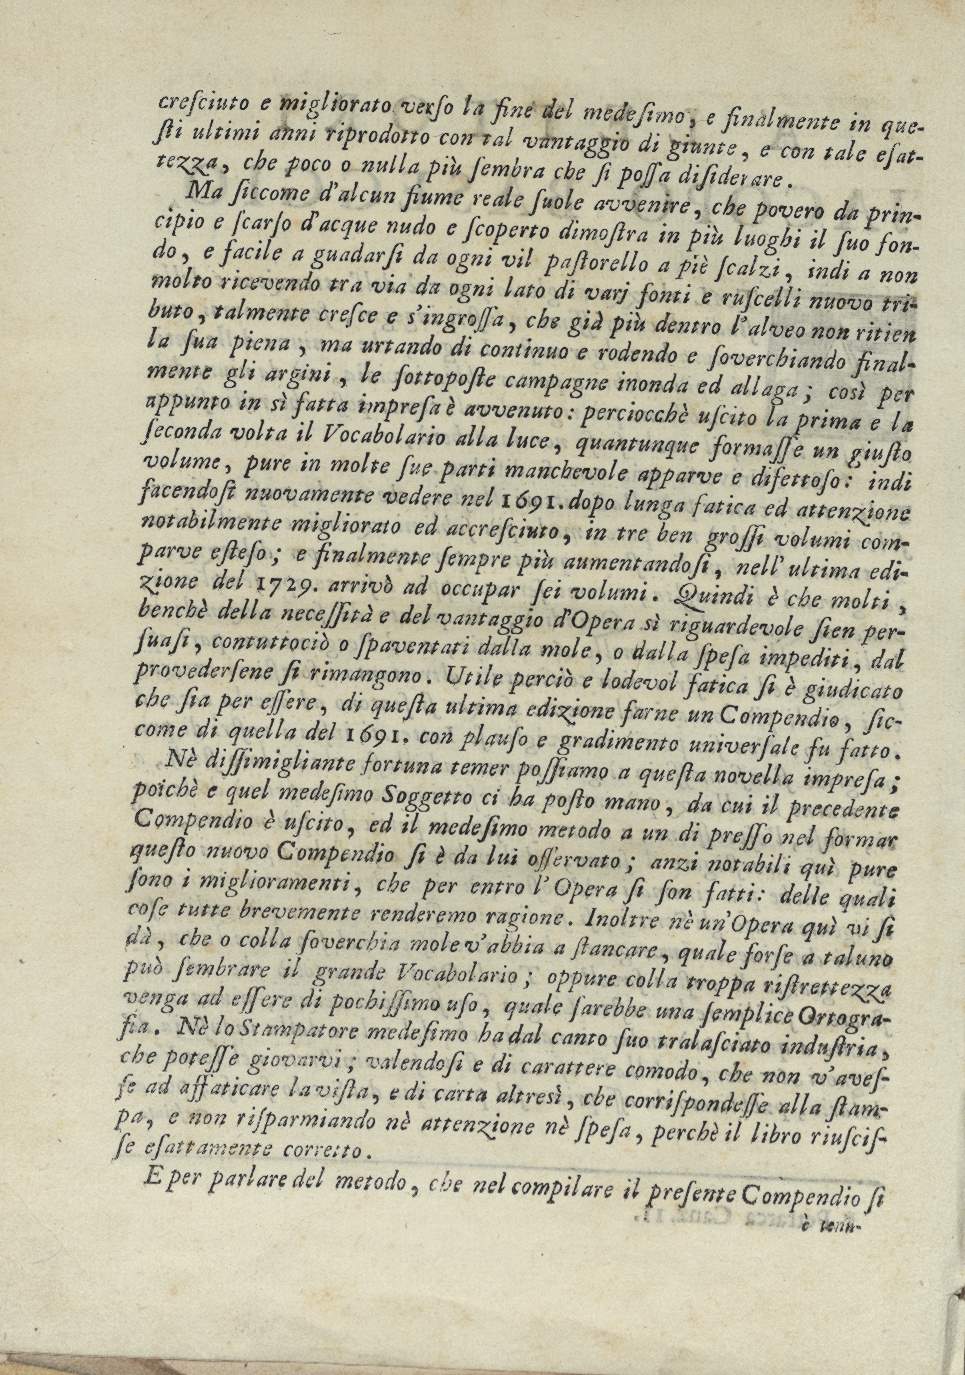 creſciuto e migliorato verſo la fine del medeſimo, e finalmente in que-
ſti ultimi anni riprodotto con tal vantaggio di giunte, e con tale eſat-
tezza, che poco o nulla più ſembra che ſi poſſa diſiderare.
Ma ſiccome d'alcun fiume reale ſuole avvenire, che povero da prin-
cipio e ſcarſo d'acque nudo e ſcoperto dimoſtra in più luoghi il ſuo fon-
do, e facile a guadarſi da ogni vil paſtorello a piè ſcalzi, indi a non
molto ricevendo tra via da ogni lato di varj fonti e ruſcelli nuovo tri-
buto, talmente creſce e s'ingroſſa, che già più dentro l'alveo non ritien
la ſua piena, ma urtando di continuo e rodendo e ſoverchiando final-
mente gli argini, le ſottopoſte campagne inonda ed allaga; così per
appunto in sì fatta impreſa è avvenuto: perciocchè uſcito la prima e la
ſeconda volta il Vocabolario alla luce, quantunque formaſſe un giuſto
volume, pure in molte ſue parti manchevole apparve e difettoſo: indi
facendoſi nuovamente vedere nel 1691. dopo lunga fatica ed attenzione
notabilmente migliorato ed accreſciuto, in tre ben groſſi volumi com-
parve eſteſo; e finalmente ſempre più aumentandoſi, nell' ultima edi-
zione del 1729. arrivò ad occupar ſei volumi. Quindi è che molti,
benchè della neceſſità e del vantaggio d'Opera sì riguardevole ſien per-
ſuaſi, contuttociò o ſpaventati dalla mole, o dalla ſpeſa impediti, dal
provederſene ſi rimangono. Utile perciò e lodevol fatica ſi è giudicato
che ſia per eſſere, di queſta ultima edizione farne un Compendio, ſic-
come di quella del 1691. con plauſo e gradimento univerſale fu fatto.
Nè diſſimigliante fortuna temer poſſiamo a queſta novella impreſa;
poichè e quel medeſimo Soggetto ci ha poſto mano, da cui il precedente
Compendio è uſcito, ed il medeſimo metodo a un di preſſo nel formar
queſto nuovo Compendio ſi è da lui oſſervato; anzi notabili quì pure
ſono i miglioramenti, che per entro l' Opera ſi ſon fatti: delle quali
coſe tutte brevemente renderemo ragione. Inoltre nè un'Opera quì vi ſi
dà, che o colla ſoverchia mole v'abbia a ſtancare, quale forſe a taluno
può ſembrare il grande Vocabolario; oppure colla troppa riſtrettezza
venga ad eſſere di pochiſſimo uſo, quale ſarebbe una ſemplice Ortogra-
fia. Nè lo Stampatore medeſimo ha dal canto ſuo tralaſciato induſtria,
che poteſſe giovarvi; valendoſi e di carattere comodo, che non v'aveſ-
ſe ad affaticare la viſta, e di carta altresì, che corriſpondeſſe alla ſtam-
pa, e non riſparmiando nè attenzione nè ſpeſa, perchè il libro riuſciſ-
ſe eſattamente corretto.
E per parlare del metodo, che nel compilare il preſente Compendio ſi
è tenu-